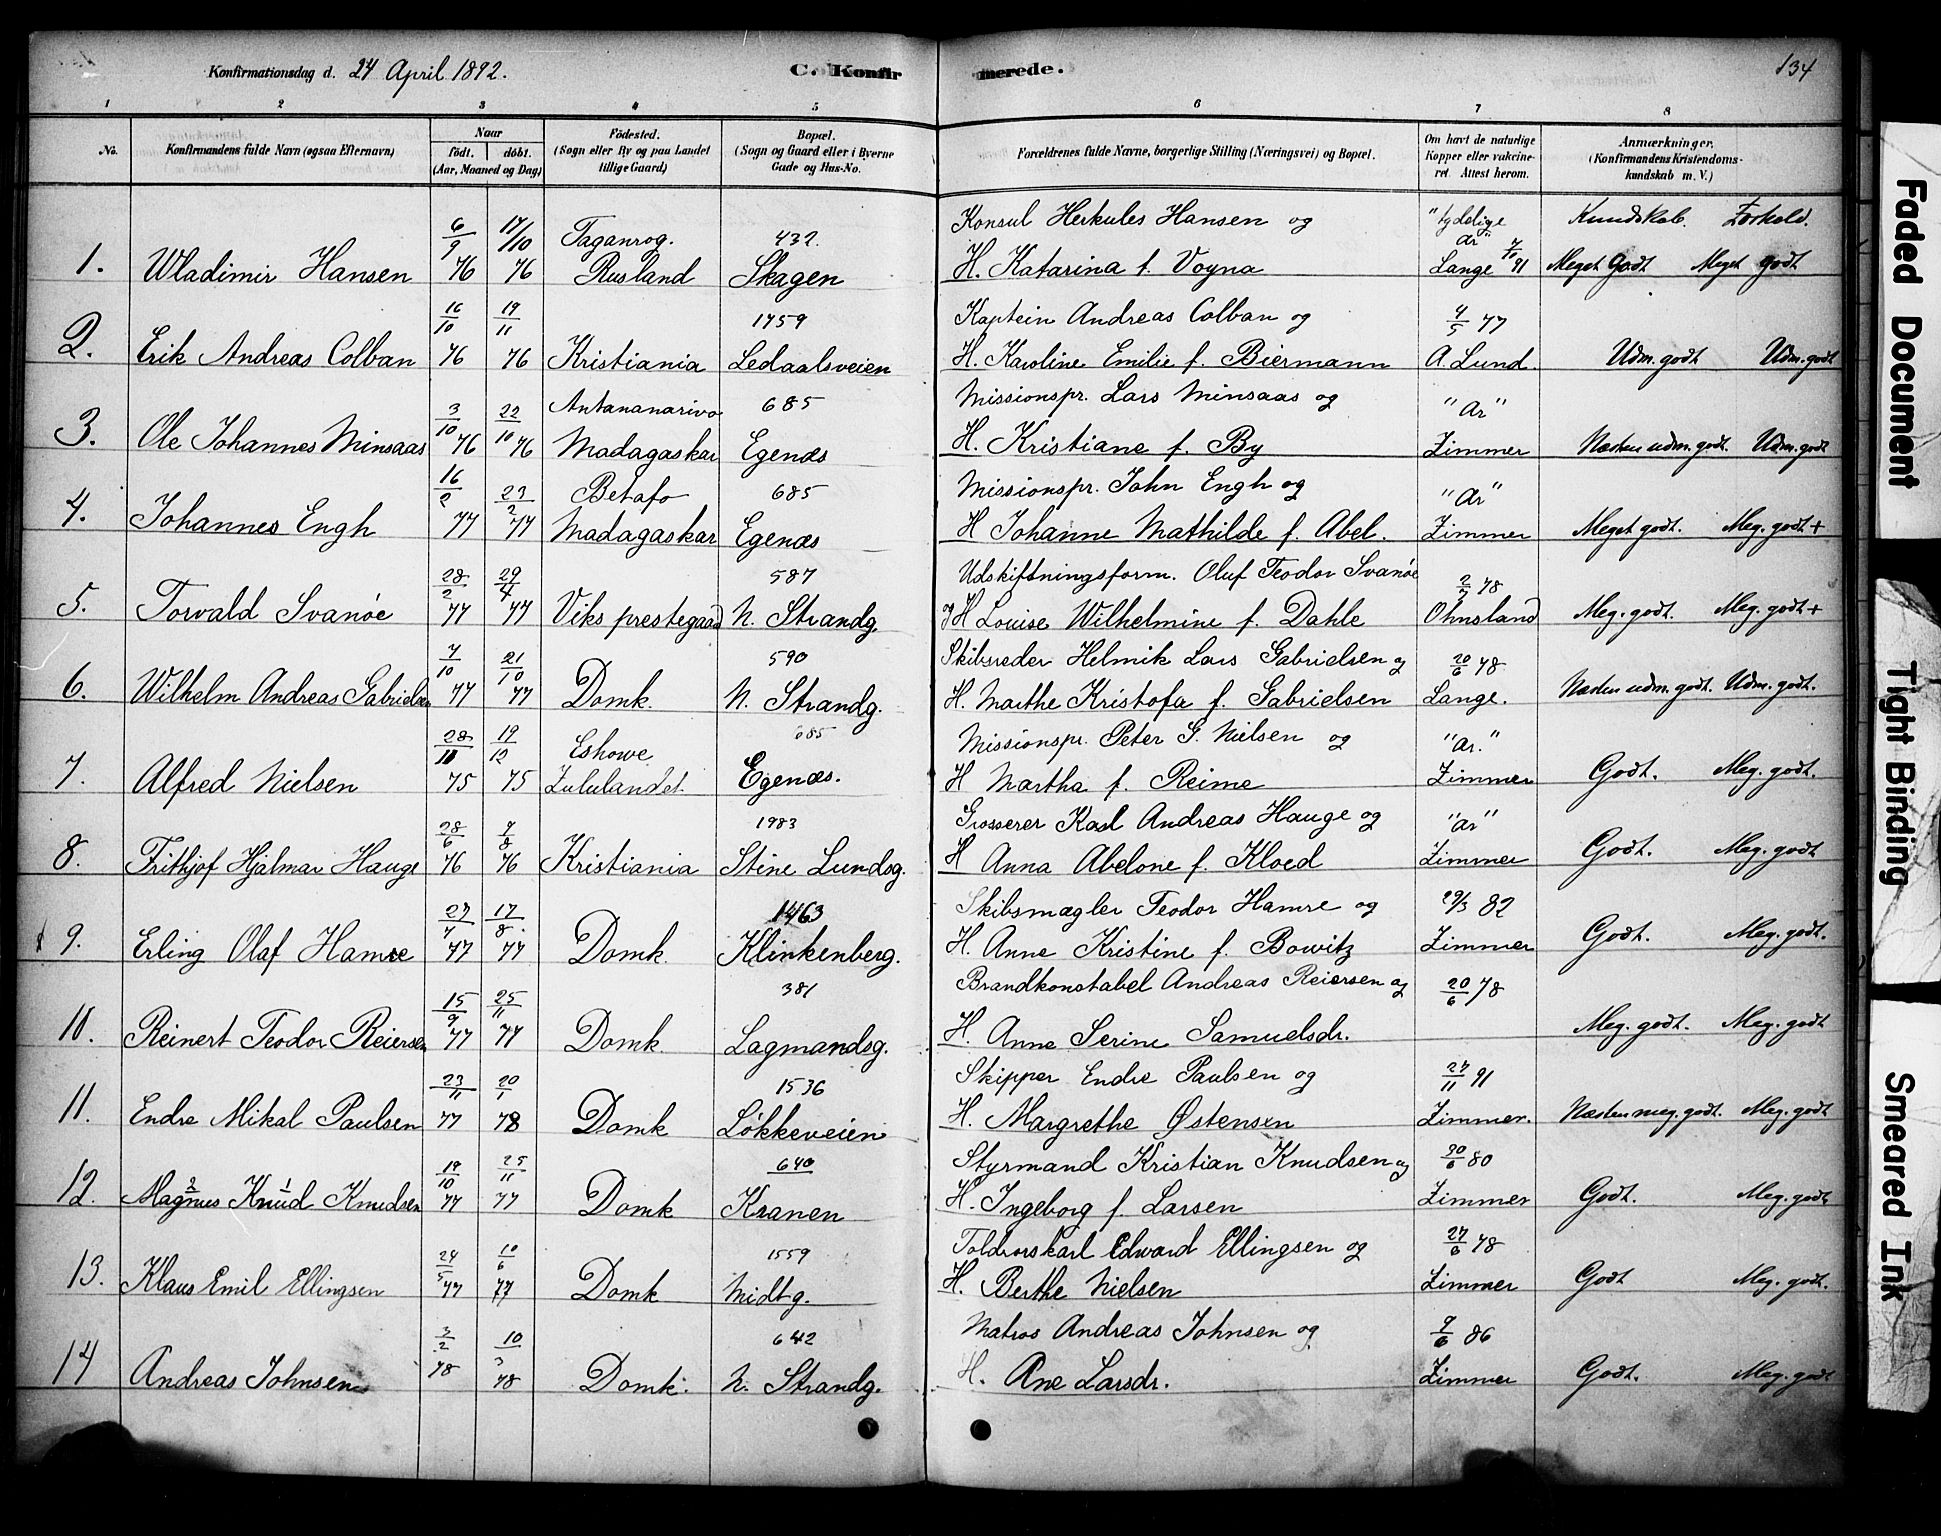 Konfirmationsdag d. 24 April 1892. C. Konfirmerede. 134
1 2 3 4 5 6 7 8
No. Konfirmandens fulde Navn (ogsaa Efternavn) Naar født. døbt. (Aar, Maaned og Dag) Fødested. (Sogn eller By og paa Landet tillige Gaard) Bopæl. (Sogn og Gaard eller i Byerne Gade og Hus-No. Forældrenes fulde Navne, borgerlige Stilling (Næringsvei) og Bopæl. Om havt de naturlige Kopper eller vakcineret. Attest herom. Anmærkninger. (Konfirmandens Kristendomskundskab m. V.)
6/9 17/10 Taganrog. 432. Konsul Herkules Hansen og "tydelige Ar" Kundskab. Forhold.
1. Wladimir Hansen 76 76 Rusland Skagen H. Katarina f. Voyna Lange 91 Meget Godt Meget godt
16/10 19/11 1759 Kaptein Andreas Colban og 4/5 77
2. Erik Andreas Colban 76 76 Kristiania Ledaalsveien H. Karoline Emilie f. Biermann A. Lund. Udm. godt Udm. godt
3/10 22/10 Antananarivo 685 Missionspr. Lars Minsaas og "Ar"
3. Ole Johannes Minsaas 76 76 Madagaskar Egenæs H. Kristiane f. By Zimmer Næsten udm. godt. Udm. godt
16/2 23/2 Betafo 685 Missionspr. John Engh og "Ar"
4. Johannes Engh 77 77 Madagaskar Egenæs H Johanne Mathilde f. Abel. Zimmer Meget godt. Meg. godt +
28/2 29/4 587 Udskiftningsform. Oluf Teodor Svanöe 2/7 78
5. Torvald Svanöe 77 77 Viks prestegaard N. Strandg. og H Louise Wilhelmine f. Dahle Ohnsland Meg. godt. Meg. godt +
7/10 21/10 590 Skibsreder Helmik Lars Gabrielsen og 20/6 78
6. Wilhelm Andreas Gabrielsen 77 77 Domk. N. Strandg. H. Marthe Kristofa f. Gabrielsen Lange. Næsten udm. godt. Udm. godt.
28/11 19/12 Eshowe 685 Missionspr. Peter G. Nielsen og "Ar."
7. Alfred Nielsen 75 75 Zululandet. Egenæs. H Martha f. Reime Zimmer Godt. Meg. godt.
28/6 7/8 1983 Grosserer Karl Andreas Hauge og "Ar"
8. Frithjof Hjalmar Hauge 76 76 Kristiania Stine Lundsg. H Anna Abelone f. Kloed Zimmer Godt. Meg. godt
27/7 17/8. 1463 Skibsmægler Teodor Hamre og 29/3 82
9. Erling Olaf Hamre 77 77 Domk. Klinkenberg. H. Anne Kristine f. Bowitz Zimmer Godt. Meg. godt.
15/9 25/11 381 Brandkonstabel Andreas Reiersen og 20/6 78
10. Reinert Teodor Reiersen 77 77 Domk. Lagmandsg. H. Anne Serine Samuelsdr. Meg. godt. Meg. godt
23/11 20/1 1536 Skipper Endre Paulsen og 27/11 91
11. Endre Mikal Paulsen 77 78 Domk Løkkeveien H. Margrethe Østensen Zimmer. Næsten meg. godt. Meg. godt
19/10 25/11 640 Styrmand Kristian Knudsen og 80
12. Magnus Knud Knudsen 77 77 Domk Kranen H. Ingeborg f. Larsen Zimmer Godt. Meg. godt
24/5 10/6 1559 Toldrorskarl Edward Ellingsen og 27/6 78
13. Klaus Emil Ellingsen 77 77 Domk Midtg. H. Berthe Nielsen Zimmer Godt Meg. godt.
3/2 10/3 642 Matros Andreas Johnsen og 9/6 86
14 Andreas Johnsen 78 78 Domk. N. Strandg. H. Ane Larsdr. Zimmer Godt. Meg. godt
Faded Document
Tight Binding
Smeared Ink